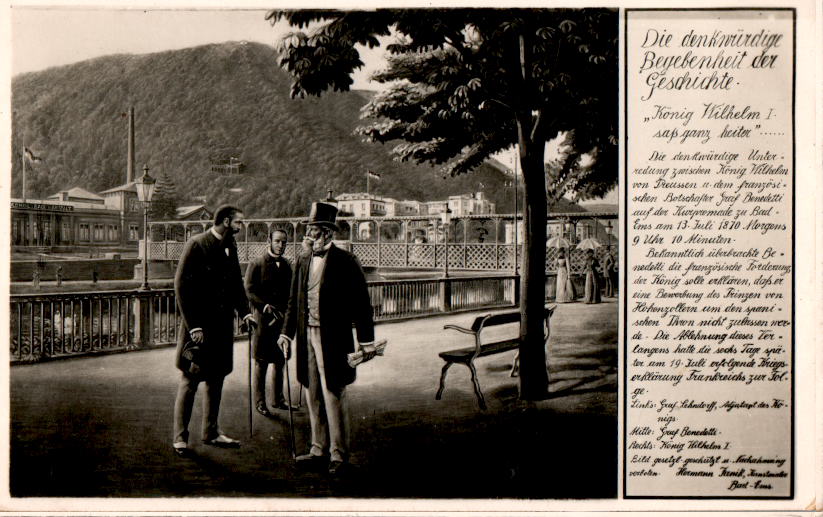 Die denkwürdige
Begebenheit der
Geschichte.
„König Wilhelm I.
saß ganz heiter"......
Die denkwürdige Unter-
redung zwischen König Wilhelm
von Preussen u. dem französi-
schen Botschafter Graf Benedetti
auf der Kurpromade zu Bad-
Ems am 13. Juli 1870 Morgens
9 Uhr 10 Minuten.
Bekanntlich überbrachte Be-
nedetti die französische Forderung,
der König solle erklären, daß er
eine Bewerbung des Prinzen von
Hohenzollern um den spani-
schen Thron nicht zulassen wer-
de. Die Ablehnung dieses Ver-
langens hatte die sechs Tage spä-
ter am 19. Juli erfolgende Kriegs-
erklärung Frankreichs zur Fol-
ge.
Links: Graf Lehndorff, Adjutant des Kö-
nigs.
Mitte: Graf Benedetti.
Rechts: König Wilhelm I.
Bild gesetzl. geschützt u. Nachahmung
verboten. Hermann Kunstmaler
Bad-Ems.